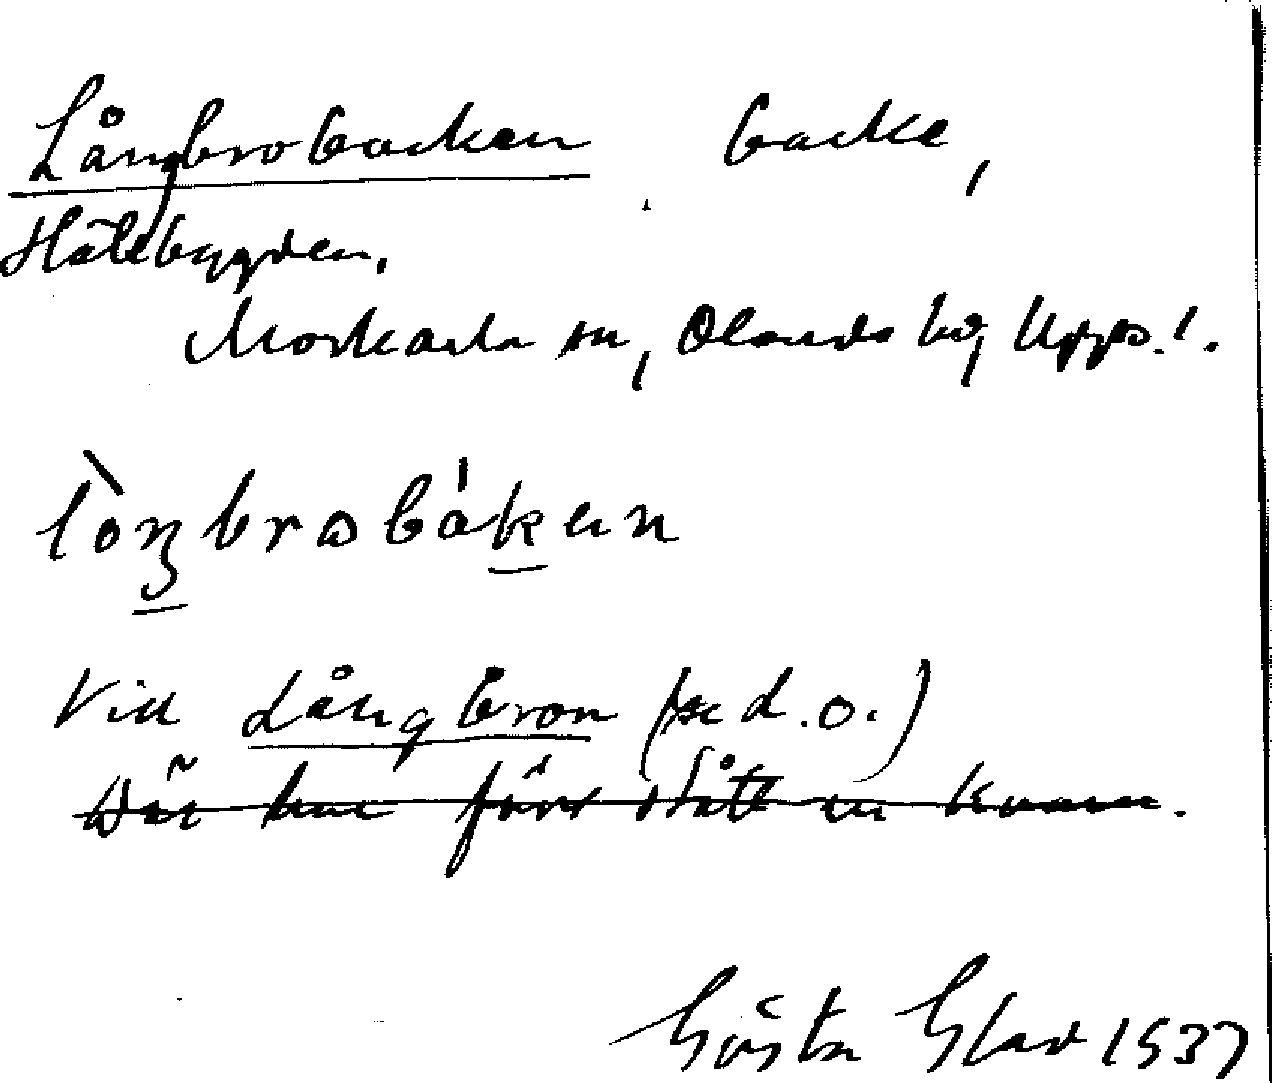 Långbrobacken backe,
Hålebygden.
Morkarla sn, Olands hd, Upps. l.
lòŋbrobákan
Vid Långbron (se d. o.)
Där har förr stått en kvarn.
Gösta Glad 1937